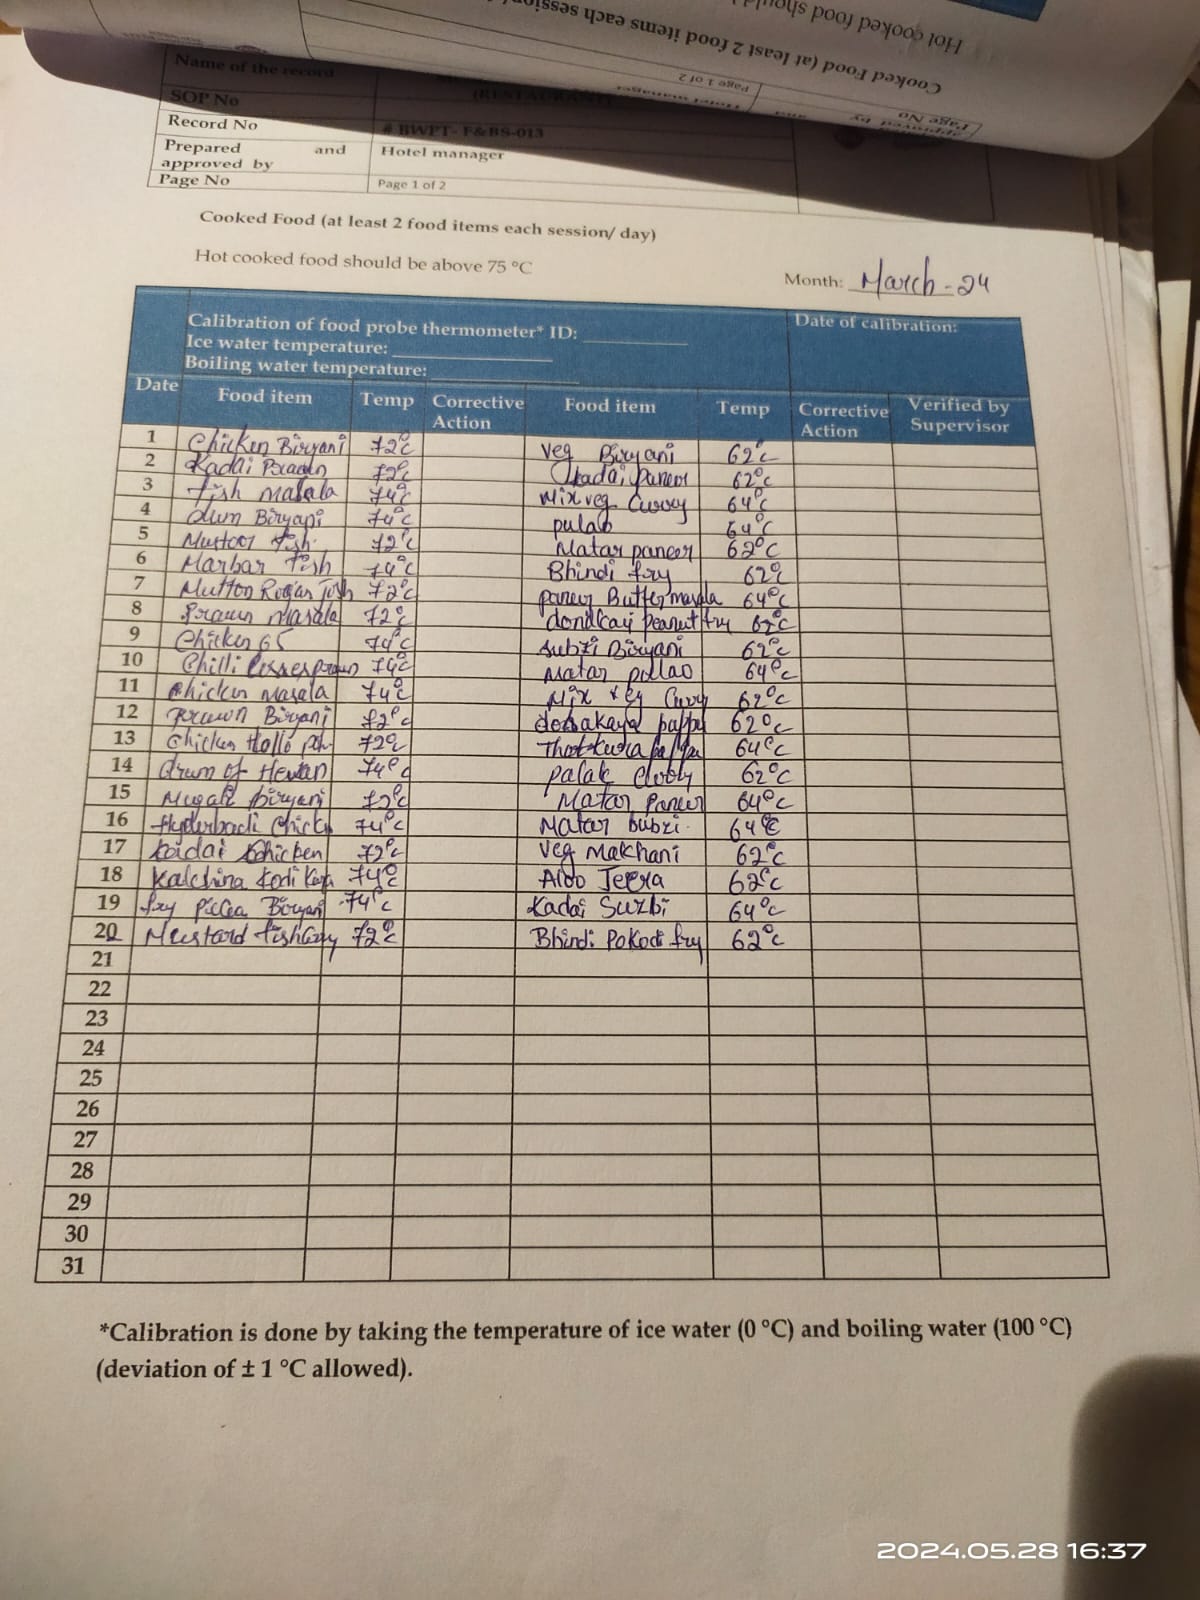 Hot cooked food should
Cooked Food (at least 2 food items each session/
Page 1 of 2
Page No
Name of the record
(RESTAURANT)
SOP No
Record No # BWPT- F&BS-013
Prepared and approved by Hotel manager
Page No Page 1 of 2
Cooked Food (at least 2 food items each session/ day)
Hot cooked food should be above 75 °C
Month: March-24
Calibration of food probe thermometer* ID: Date of calibration:
Ice water temperature:
Boiling water temperature:
Date Food item Temp Corrective Action Food item Temp Corrective Action Verified by Supervisor
1 Chicken Biryani 72°c Veg Biryani 62°c
2 Kadai 72°c kadai paneer 62°c
3 fish masala 74°c Mix veg Curry 64°c
4 dum Biryani 74°c pulao 64°c
5 fish 72°c Matar paneer 62°c
6 Marbar fish 74°c Bhindi fry 62°c
7 Mutton Rogan Josh 72°c paneer Butter masala 64°c
8 Prawn masala 72°c dondkay peanut fry 62°c
9 Chicken 65 74°c subzi Biryani 62°c
10 Chilli 74°c Matar pullao 64°c
11 Chicken Masala 74°c Mix veg Curry 62°c
12 Prawn Biryani 72°c dosakaya pappu 62°c
13 Chicken 72°c 64°c
14 drum of Hevan 74°c palak 62°c
15 biryani 72°c Matar Paneer 64°c
16 74°c Matar subzi 64°c
17 kadai Chicken 72°c Veg Makhani 62°c
18 Kodi 74°c Aloo Jeera 62°c
19 fry Biryani 74°c Kadai Suzbi 64°c
20 Mustard fish 72°c Bhindi Pokodi fry 62°c
21
22
23
24
25
26
27
28
29
30
31
*Calibration is done by taking the temperature of ice water (0 °C) and boiling water (100 °C)
(deviation of ± 1 °C allowed).
2024.05.28 16:37